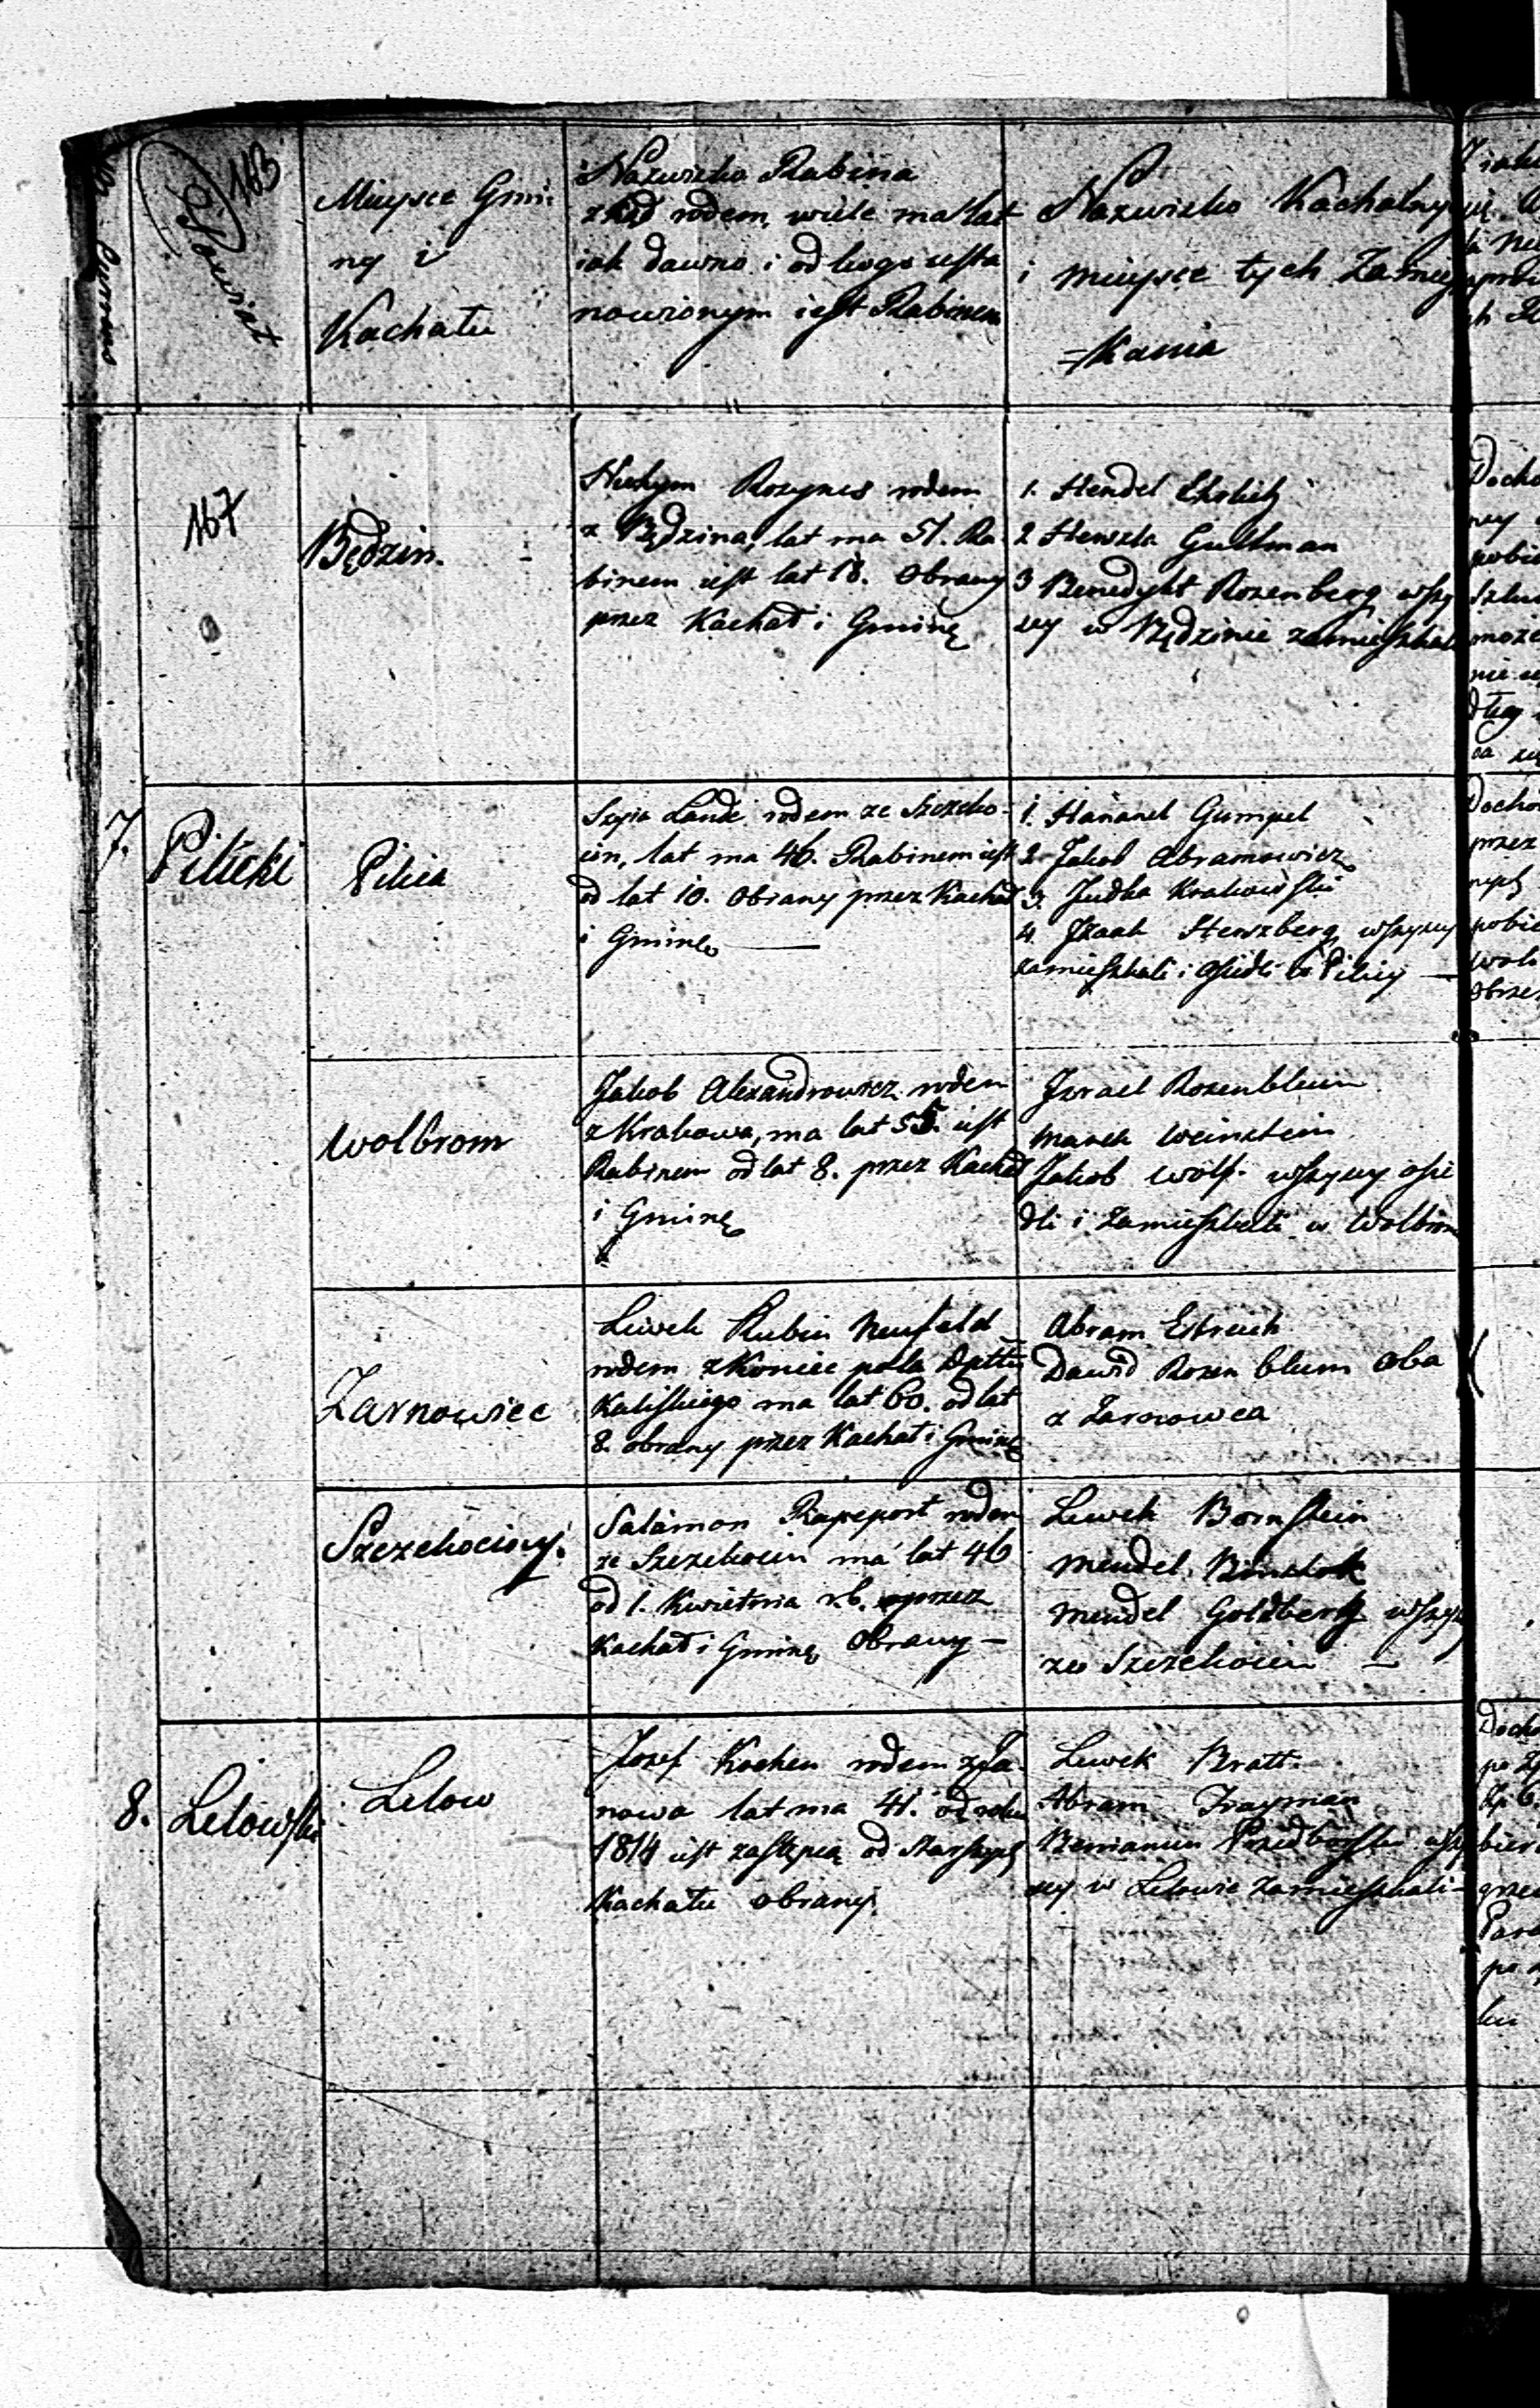 163
Powiat
Mieysce Gmi-
ny i
Kachału
Nazwisko Rabina
zkąd rodem, wiele ma lat
iak dawno i od kogo usta
nowionym iest Rabinem
Nazwisko Kachalny
i mieysce tych Zamie
=szkania
167
Będzin.
rodem
z Będzina, lat ma 51. Ra-
binem iest lat 18. Obrany
przez Kachał i Gminę
1. Hendel Ehrlich
2 Herszla Guttman
3 Benedykt Rozenberg wszy
scy w Będzinie zamieszkali
7.
Pilicki
Pilica
Lande rodem ze Szczeko-
cin, lat ma 46. Rabinem iest
od lat 10. Obrany przez Kachał
i Gminę —
1. Hananel Gumpel
2. Jakob Abramowicz
3. Judka Krakowski
4. Izaak Herszberg wszyscy
zamieszkali i osiedli w Pilicy —
Wolbrom
Jakob Alexandrowicz rodem
z Krakowa, ma lat 55. iest
Rabinem od lat 8. przez Kachał
i Gminę
Izrael Rozenblum
Marek Weinstein
Jakob Wolf. wszyscy osie
dli i zamieszkali w Wolbrom
Zarnowiec
Lewek Rubin Neufeld
rodem z Koniec pola Dptt
Kaliskiego ma lat 60. od lat
8. obrany przez Kachał i Gminę
Abram Estreich
Dawid Rozen blum oba
z Zarnowca
Szczekociny.
Salamon Rapeport rodem
ze Szczekocin ma lat 46
od 1. Kwietnia r.b. przez
Kachał i Gminę Obrany —
Lewek Bornstein
Mendel
Mendel Goldberg wszys
ze Szczekocin —
8.
Lelowski
Lelow
Jozef Kochen rodem z Ja-
nowa lat ma 41. od roku
1814 iest zastępcą od starszych
Kachału obrany.
Lewek Bratt
Abram Frayman
Beniamin Przedborski wszy
scy w Lelowie zamieszkali —